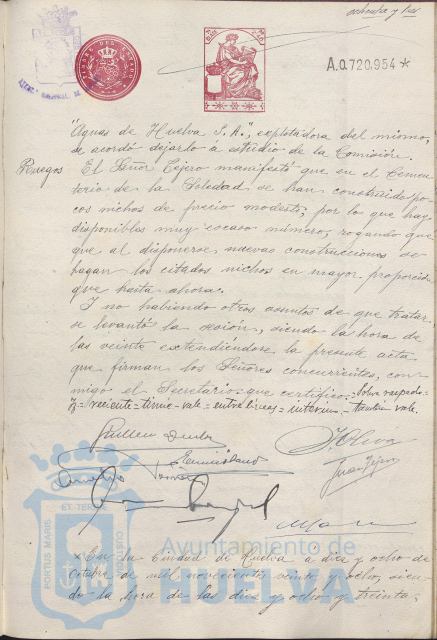 ochenta y tres
A.0.720.954 *
"Aguas de Huelva S.A.", explotadora del mismo,
se acordó dejarlo á estudio de la Comisión.
Ruegos El Señor Tejero manifestó que en el Cemen-
terio de la Soledad se han construido po-
cos nichos de precio modesto, por lo que hay
disponibles muy escaso número, rogando que
que al disponerse nuevas construcciones se
hagan los citados nichos en mayor proporción
que hasta ahora.
Y no habiendo otros asuntos de que tratar
se levantó la sesión, siendo la hora de
las veinte extendiéndose la presente acta
que firman los Señores concurrentes, con-
migo el Secretario que certifico.
vale = entre líneas = interino = también vale.
J. Oliva
Juan Tejero
PORTUS MARIS ET TERRE CUSTODIA
Ayuntamiento de
HUELVA
En la Ciudad de Huelva a diez y ocho de
Octubre de mil novecientos veinte y ocho, sien-
do la hora de las diez y ocho y treinta,